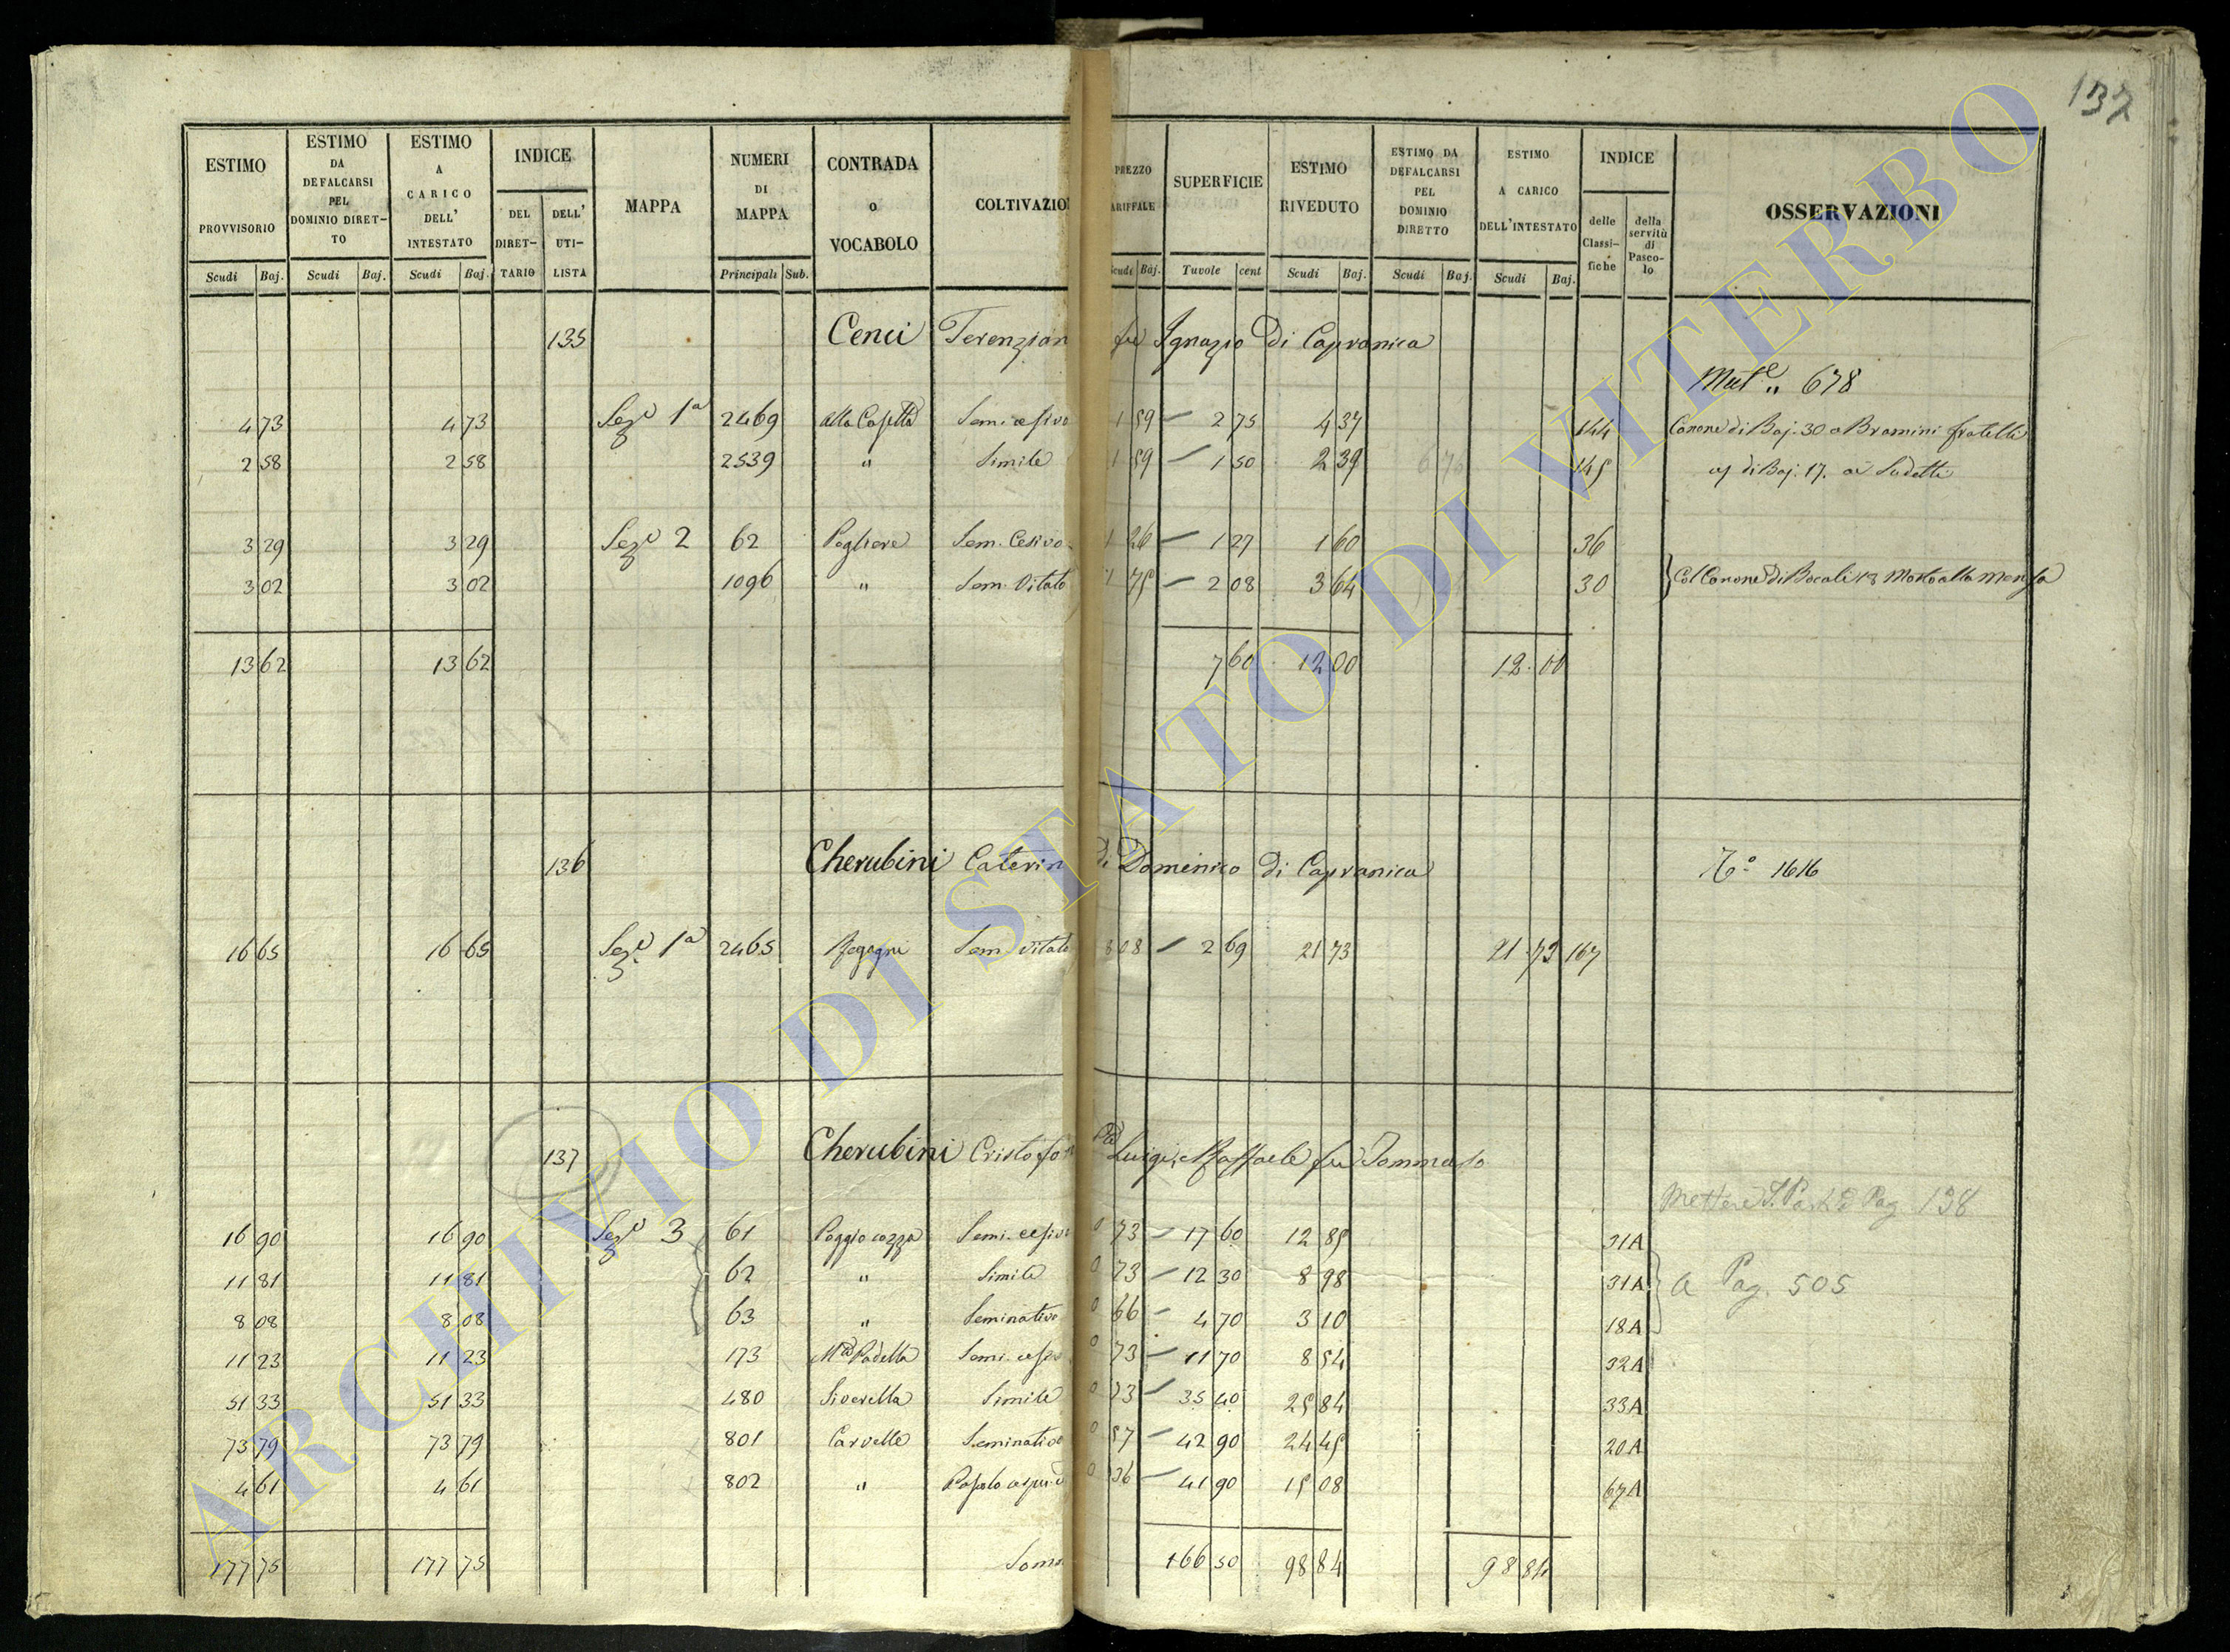 137
ESTIMO PROVVISORIO Scudi Baj.
ESTIMO DA DEFALCARSI PEL DOMINIO DIRET-TO Scudi Baj.
ESTIMO A CARICO DELL' INTESTATO Scudi Baj.
INDICE DEL DIRET-TARIO DELL' UTI-LISTA
MAPPA
NUMERI DI MAPPA Principali Sub.
CONTRADA o VOCABOLO
COLTIVAZIO
PREZZO ARIFFALE Scudi Baj.
SUPERFICIE Tavole cent
ESTIMO RIVEDUTO Scudi Baj.
ESTIMO DA DEFALCARSI PEL DOMINIO DIRETTO Scudi Baj.
ESTIMO A CARICO DELL'INTESTATO Scudi Baj.
INDICE delle Classi-fiche della servitù di Pasco-lo
OSSERVAZIONI
135 Cenci Terenzian fu Ignazio Di Capranica
Mut.e " 678
4 73 4 73 Sez.e 1a 2469 alla Casetta Sem. cesivo 1 59 — 2 75 4 37 144 Canone di Baj. 30 a Bramini fratelli
2 58 2 58 2539 " Simile 1 59 — 1 50 2 39 145 di Baj. 17. ai Sudetti
3 29 3 29 Sez.e 2 62 Pogliere Sem. Cesivo 1 26 — 1 27 1 60 36
3 02 3 02 1096 " Sem. Vitato 1 75 — 2 08 3 64 30 Col Canone di Bocali 13 Mosto alla Mensa
13 62 13 62 7 60 12 00 12 00
136 Cherubini Caterin di Domenico di Capranica
T.o 1616
16 65 16 65 Sez.e 1a 2465 Sem. vitato 8 08 — 2 69 21 73 21 73 167
137 Cherubini Cristofo Luigi, e Raffaele fu Tommaso
Mettere Pag 138
16 90 16 90 Sez.e 3 61 Poggio cozza Semi. cesivo 0 73 — 17 60 12 85 31A
11 81 11 81 62 " Simile 0 73 — 12 30 8 98 31A a Pag. 505
8 08 8 08 63 " Seminativo 0 66 — 4 70 3 10 18A
11 23 11 23 173 M.a Padella Semi. cesivo 0 73 — 11 70 8 54 32A
51 33 51 33 480 Siverella Simile 0 73 — 35 40 25 84 33A
73 79 73 79 801 Carvelle Seminativo 0 57 — 42 90 24 45 20A
4 61 4 61 802 " Pascolo 0 36 — 41 90 15 08 67A
177 75 177 75 Somm 166 50 98 84 98 84
ARCHIVIO DI STATO DI VITERBO